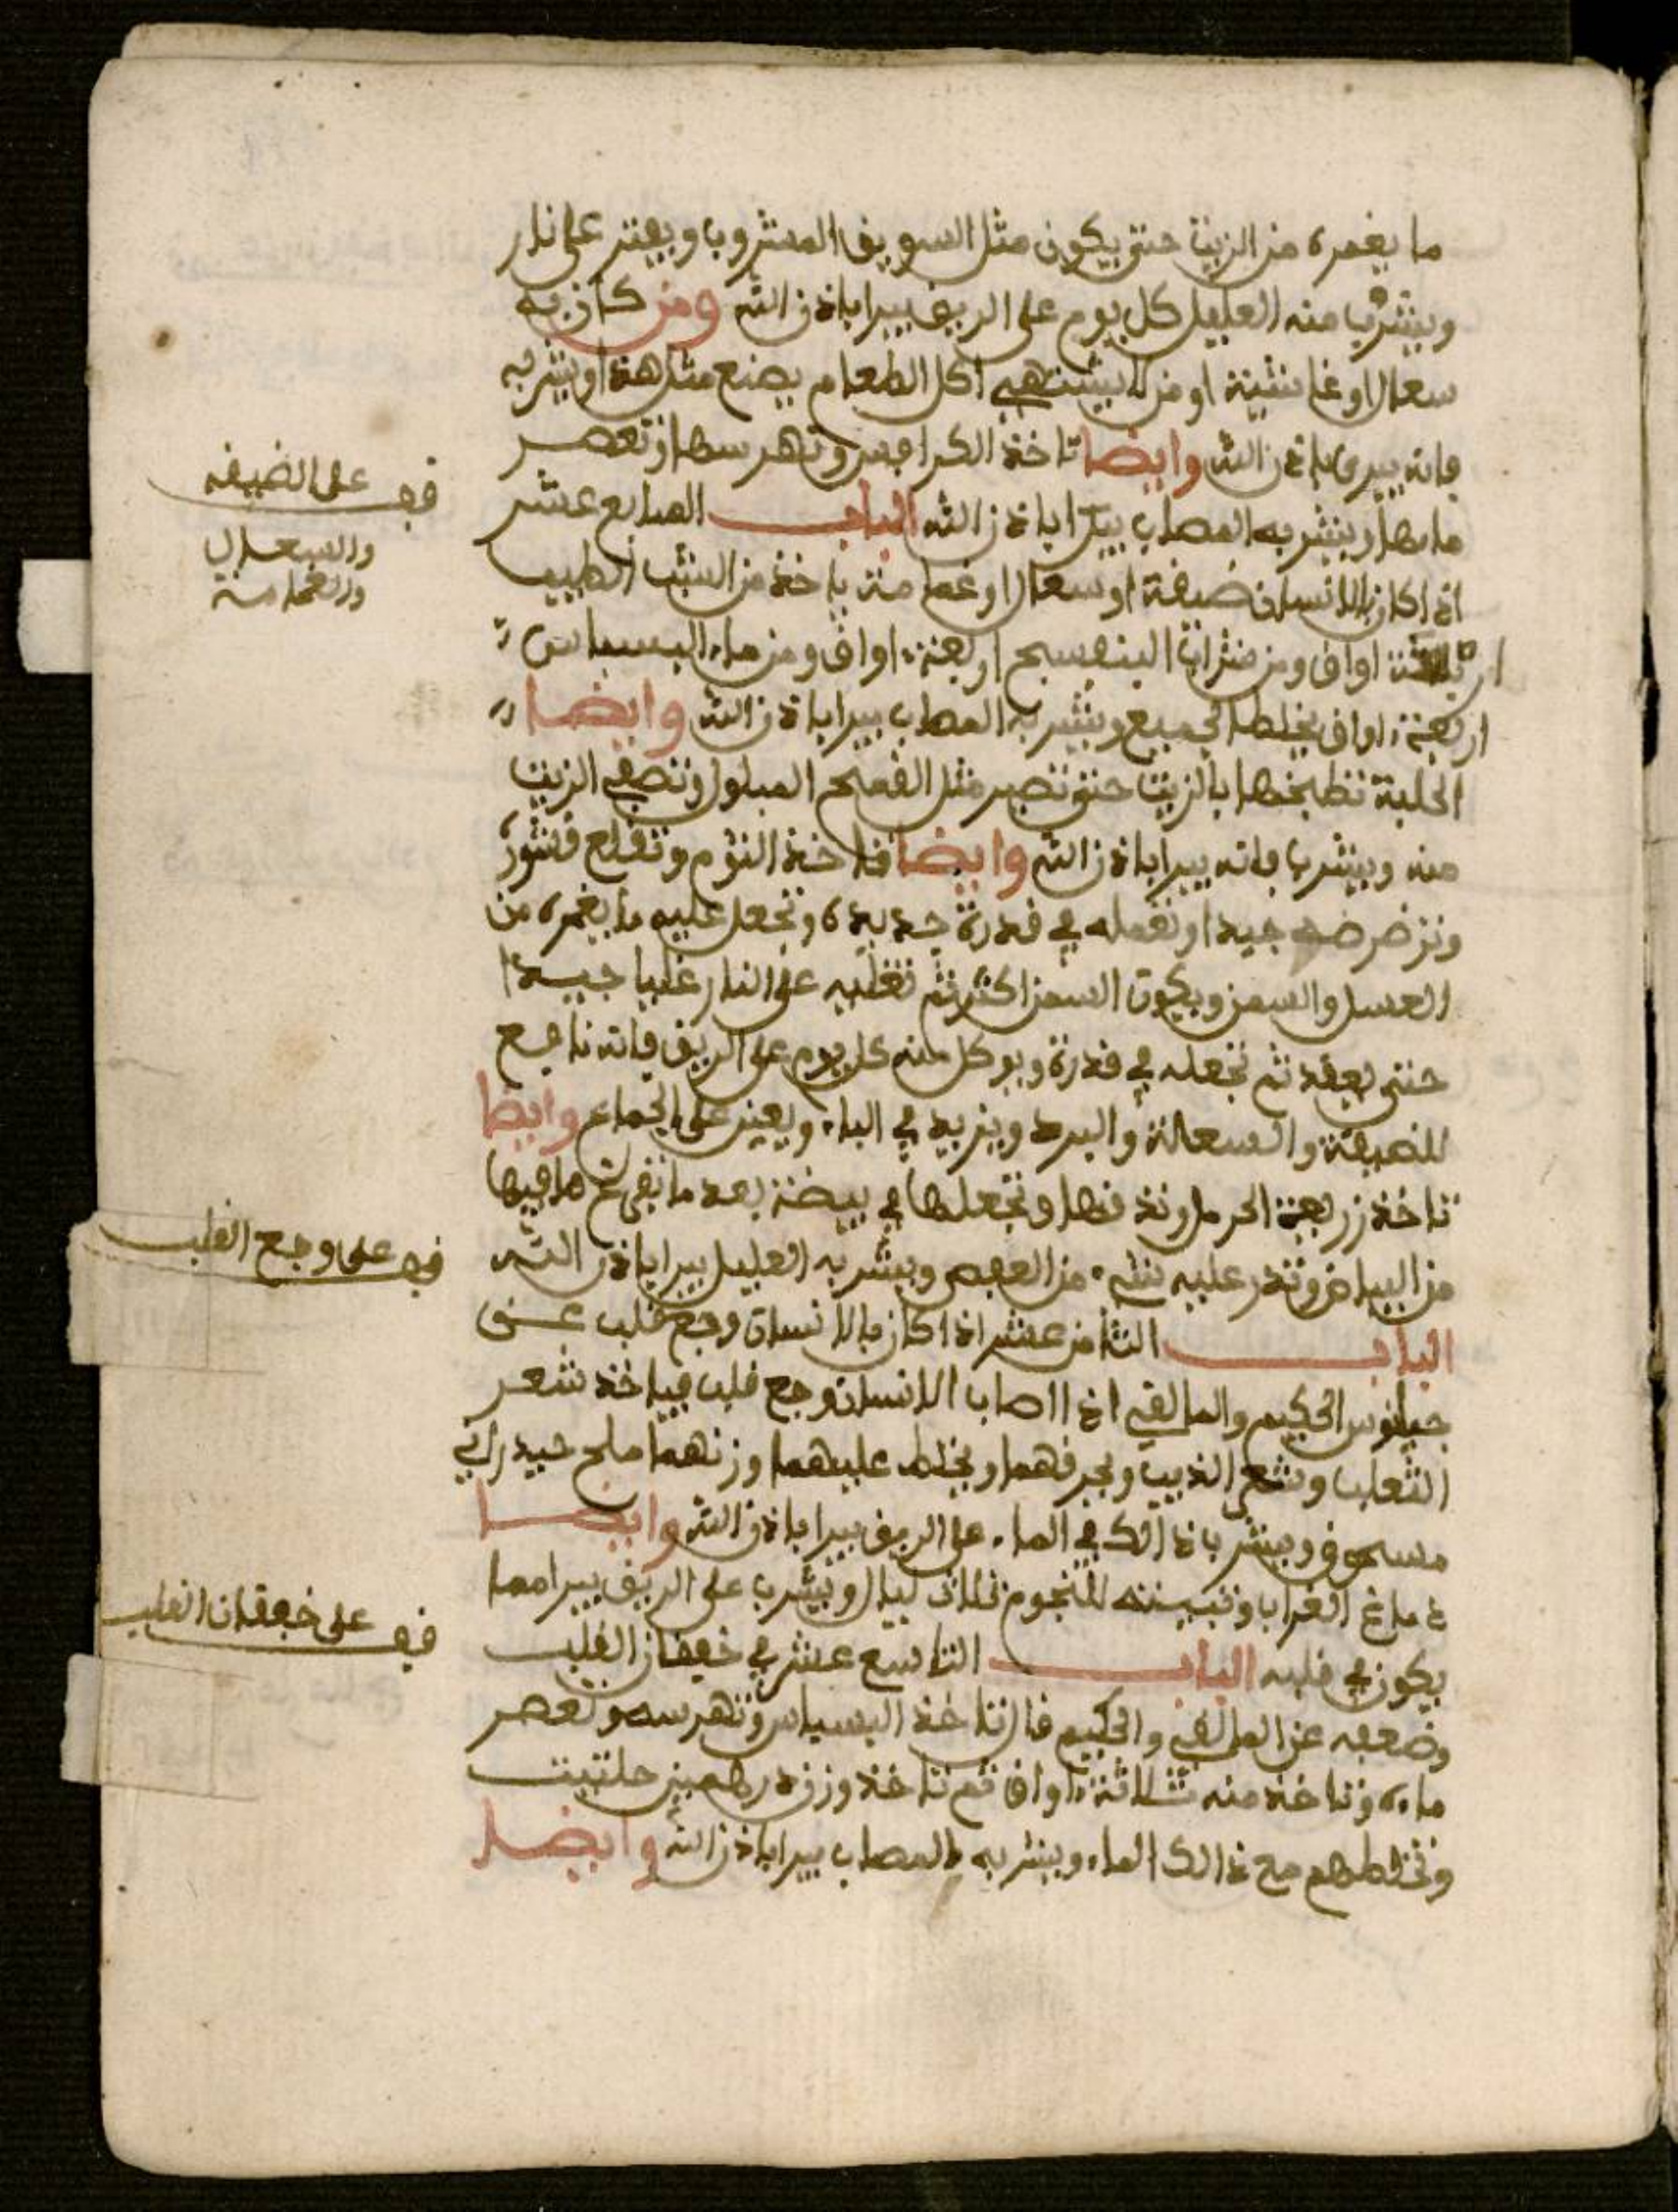 ما يغمره من الزيت حتى يكون مثل السويق المشروب ويفتر على نار
ويشرب منه العليل كل يوم على الريق يبرا باذن الله ومن كان به
سعال او غا او من لا يشتهي اكل الطعام يصنع مثل هذا ويشربه
فانه يبرى باذن الله وايضا تاخذ الكرافس وتهرسها وتعصر
ماءها ويشربه المصاب يبرا باذن الله الباب السابع عشر
اذا كان بالانسان ضيقة او سعال او غمامة ياخذ من الشب الطيب
اواق ومن شراب البنفسج اربعة اواق ومن ماء البسباس
اربعة اواق يخلط الجميع ويشربه المصاب يبرا باذن الله وايضا
الحلبة تطبخها بالزيت حتى تصير مثل القمح المبلول وتصفي الزيت
منه ويشرب فانه يبرا باذن الله وايضا تاخذ الثوم وتقلع قشوره
وترضرضه جيدا وتعمله في قدرة جديدة وتجعل عليه ما يغمره من
العسل والسمن ويكون السمن اكثر ثم تغليه على النار غليا جيدا
حتى يعقد ثم تجعله في قدرة ويوكل منه كل يوم على الريق فانه نافع
للضيقة والسعالة والبرد ويزيد في الباء ويعين على الجماع وايضا
تاخذ زريعة الحرمل وتدقها وتجعلها في بيضة بعد ما تفرغ ما فيها
من البياض وتذر عليه شيء من العفص ويشربه العليل يبرا باذن الله
الباب الثامن عشر اذا كان بالانسان وجع قلب عن
جيلنوس الحكيم والمالقي اذا اصاب الانسان وجع قلب فياخذ شعر
الثعلب وشعر الذيب ويحرقهما ويخلط عليهما وزنهما ملح حيدراني
مسحوق ويشرب ذالك في الماء على الريق يبرا باذن الله وايضا
دماغ الغراب وتبيته للنجوم ثلاث ليال ويشرب على الريق يبرا مما
يكون في قلبه الباب التاسع عشر في خفقان القلب
وضعفه عن المالقي والحكيم قال تاخذ البسباس وتهرسه وتعصر
ماءه وتاخذ منه ثلاثة اواق ثم تاخذ وزن درهمين حلتيت
وتخلطهم مع ذالك الماء ويشربه المصاب يبرا باذن الله وايضا
قف على الضيقه
والسعال
والغمامة
قف على وجع القلب
قف على خفقان القلب